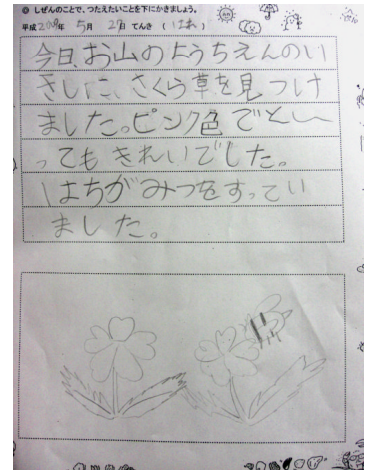 しぜんのことで、つたえたいことを下にかきましょう。
平成2008年 5月 29日 てんき ( はれ )
今日、お山のようちえんのい
きしに、さくら草を見つけ
ました。ピンク色でとーー
ってもきれいでした。
はちがみつをすってい
ました。